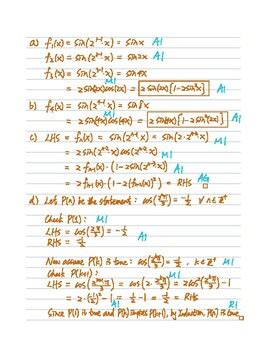 a) f₁(x) = sin(2¹⁻¹x) = sinx A1
f₂(x) = sin(2²⁻¹x) = sin2x A1
f₃(x) = sin(2³⁻¹x) = sin4x
= 2sin2xcos2x = 2sin2x{1-2sin²x} A1
b) f₄(x) = sin(2⁴⁻¹x) = sin8x M1
= 2sin4xcos4x = 2sin4x{1-2sin²(2x)} A1
c) LHS = fₙ(x) = sin(2ⁿ⁻¹x) = sin(2·2ⁿ⁻²x) M1
= 2sin(2ⁿ⁻²x)cos(2ⁿ⁻²x) M1
= 2fₙ₋₁(x)·(1-2sin²(2ⁿ⁻³x)) A1
= 2fₙ₋₁(x)·(1-2(fₙ₋₂(x))²) = RHS □ AG
d) Let P(n) be the statement: cos(2ⁿπ/3) = -1/2 ∀ n∈ℤ⁺
Check P(1): M1
LHS = cos(2π/3) = -1/2
RHS = -1/2 A1
Now assume P(k) is true: cos(2ᵏπ/3) = -1/2, k∈ℤ⁺ M1
Check P(k+1): M1
LHS = cos(2ᵏ⁺¹π/3) = cos(2·2ᵏπ/3) = 2cos²(2ᵏπ/3)-1
= 2·(-1/2)²-1 = 1/2-1 = -1/2 = RHS
A1 A1 R1
Since P(1) is true and P(k) implies P(k+1), by induction, P(n) is true. □